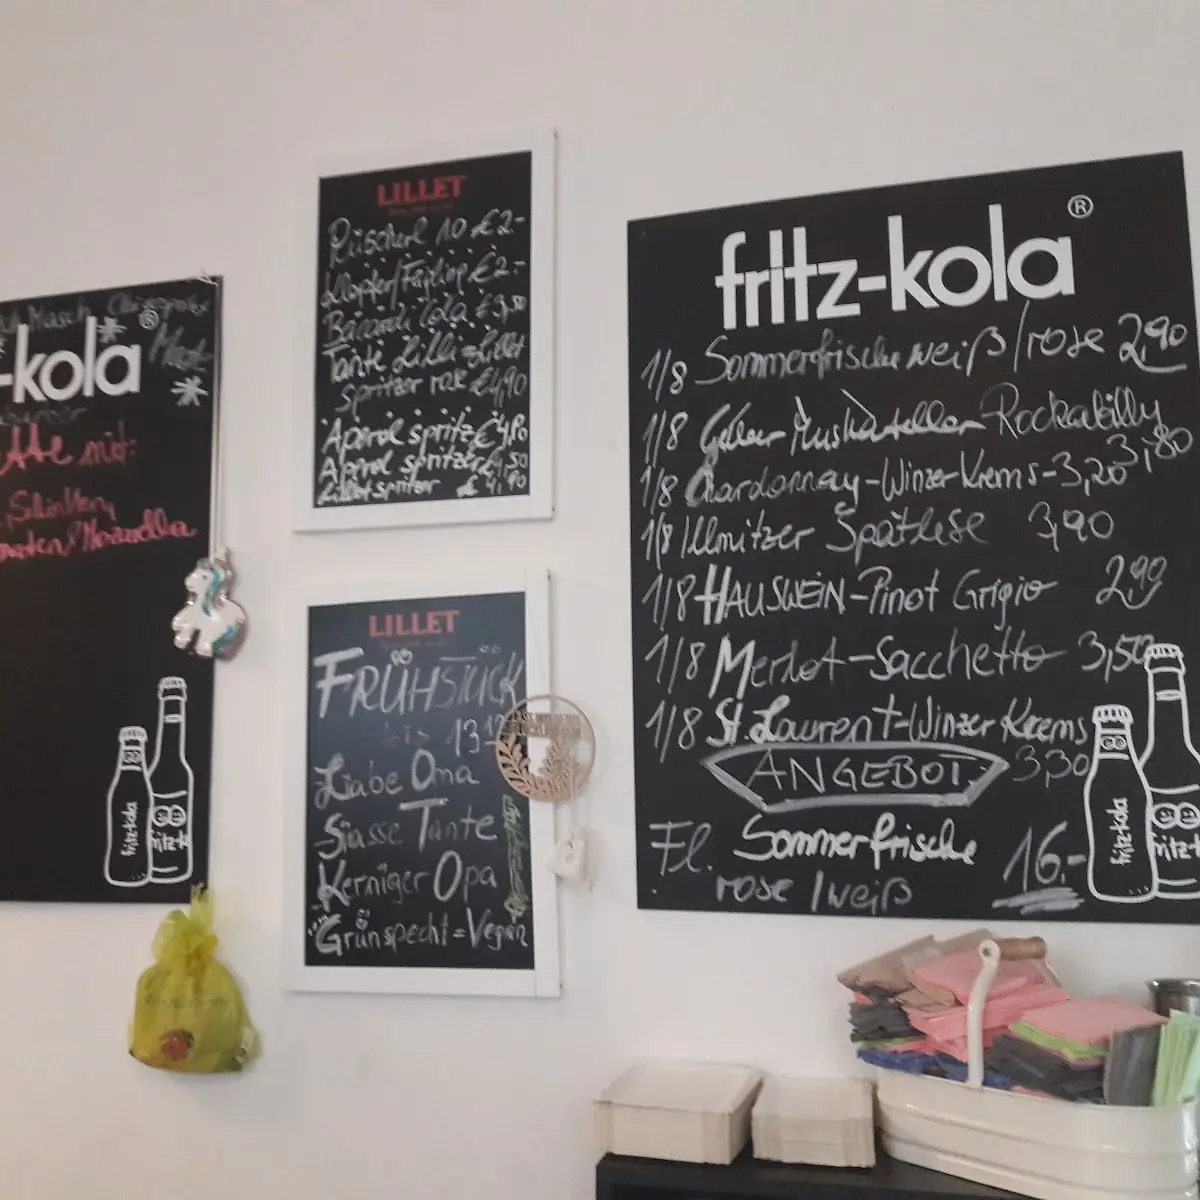 Masch
-kola®
ette mit:
Schinken,
maten/Mozarella
fritz-kola
fritz-k
LILLET
Rüscherl 10 € 2.-
Klopfer/Feigling € 2.-
Bacardi Cola € 3,50
Tante Lilli-Lillet
spritzer rose €4,90
Aperol spritz € 4,80
Aperol spritzer € 4,50
Lillet spritzer € 4,90
LILLET
FRÜHSTÜCK
bis 13
Liabe Oma
Siasse Tante
Kerniger Opa
Grünspecht=Vegan
fritz-kola®
1/8 Sommerfrische weiß/rose 2,90
1/8 Gelber Muskateller Rockabilly
3,80
1/8 Chardonnay-Winzer Krems-3,20
1/8 Illmitzer Spätlese 3,90
1/8 HAUSWEIN-Pinot Grigio 2,90
1/8 Merlot-Sacchetto 3,50
1/8 St. Laurent-Winzer Krems
ANGEBOT 3,30
Fl. Sommerfrische 16.-
rose/weiß
fritz-kola
fritz-k